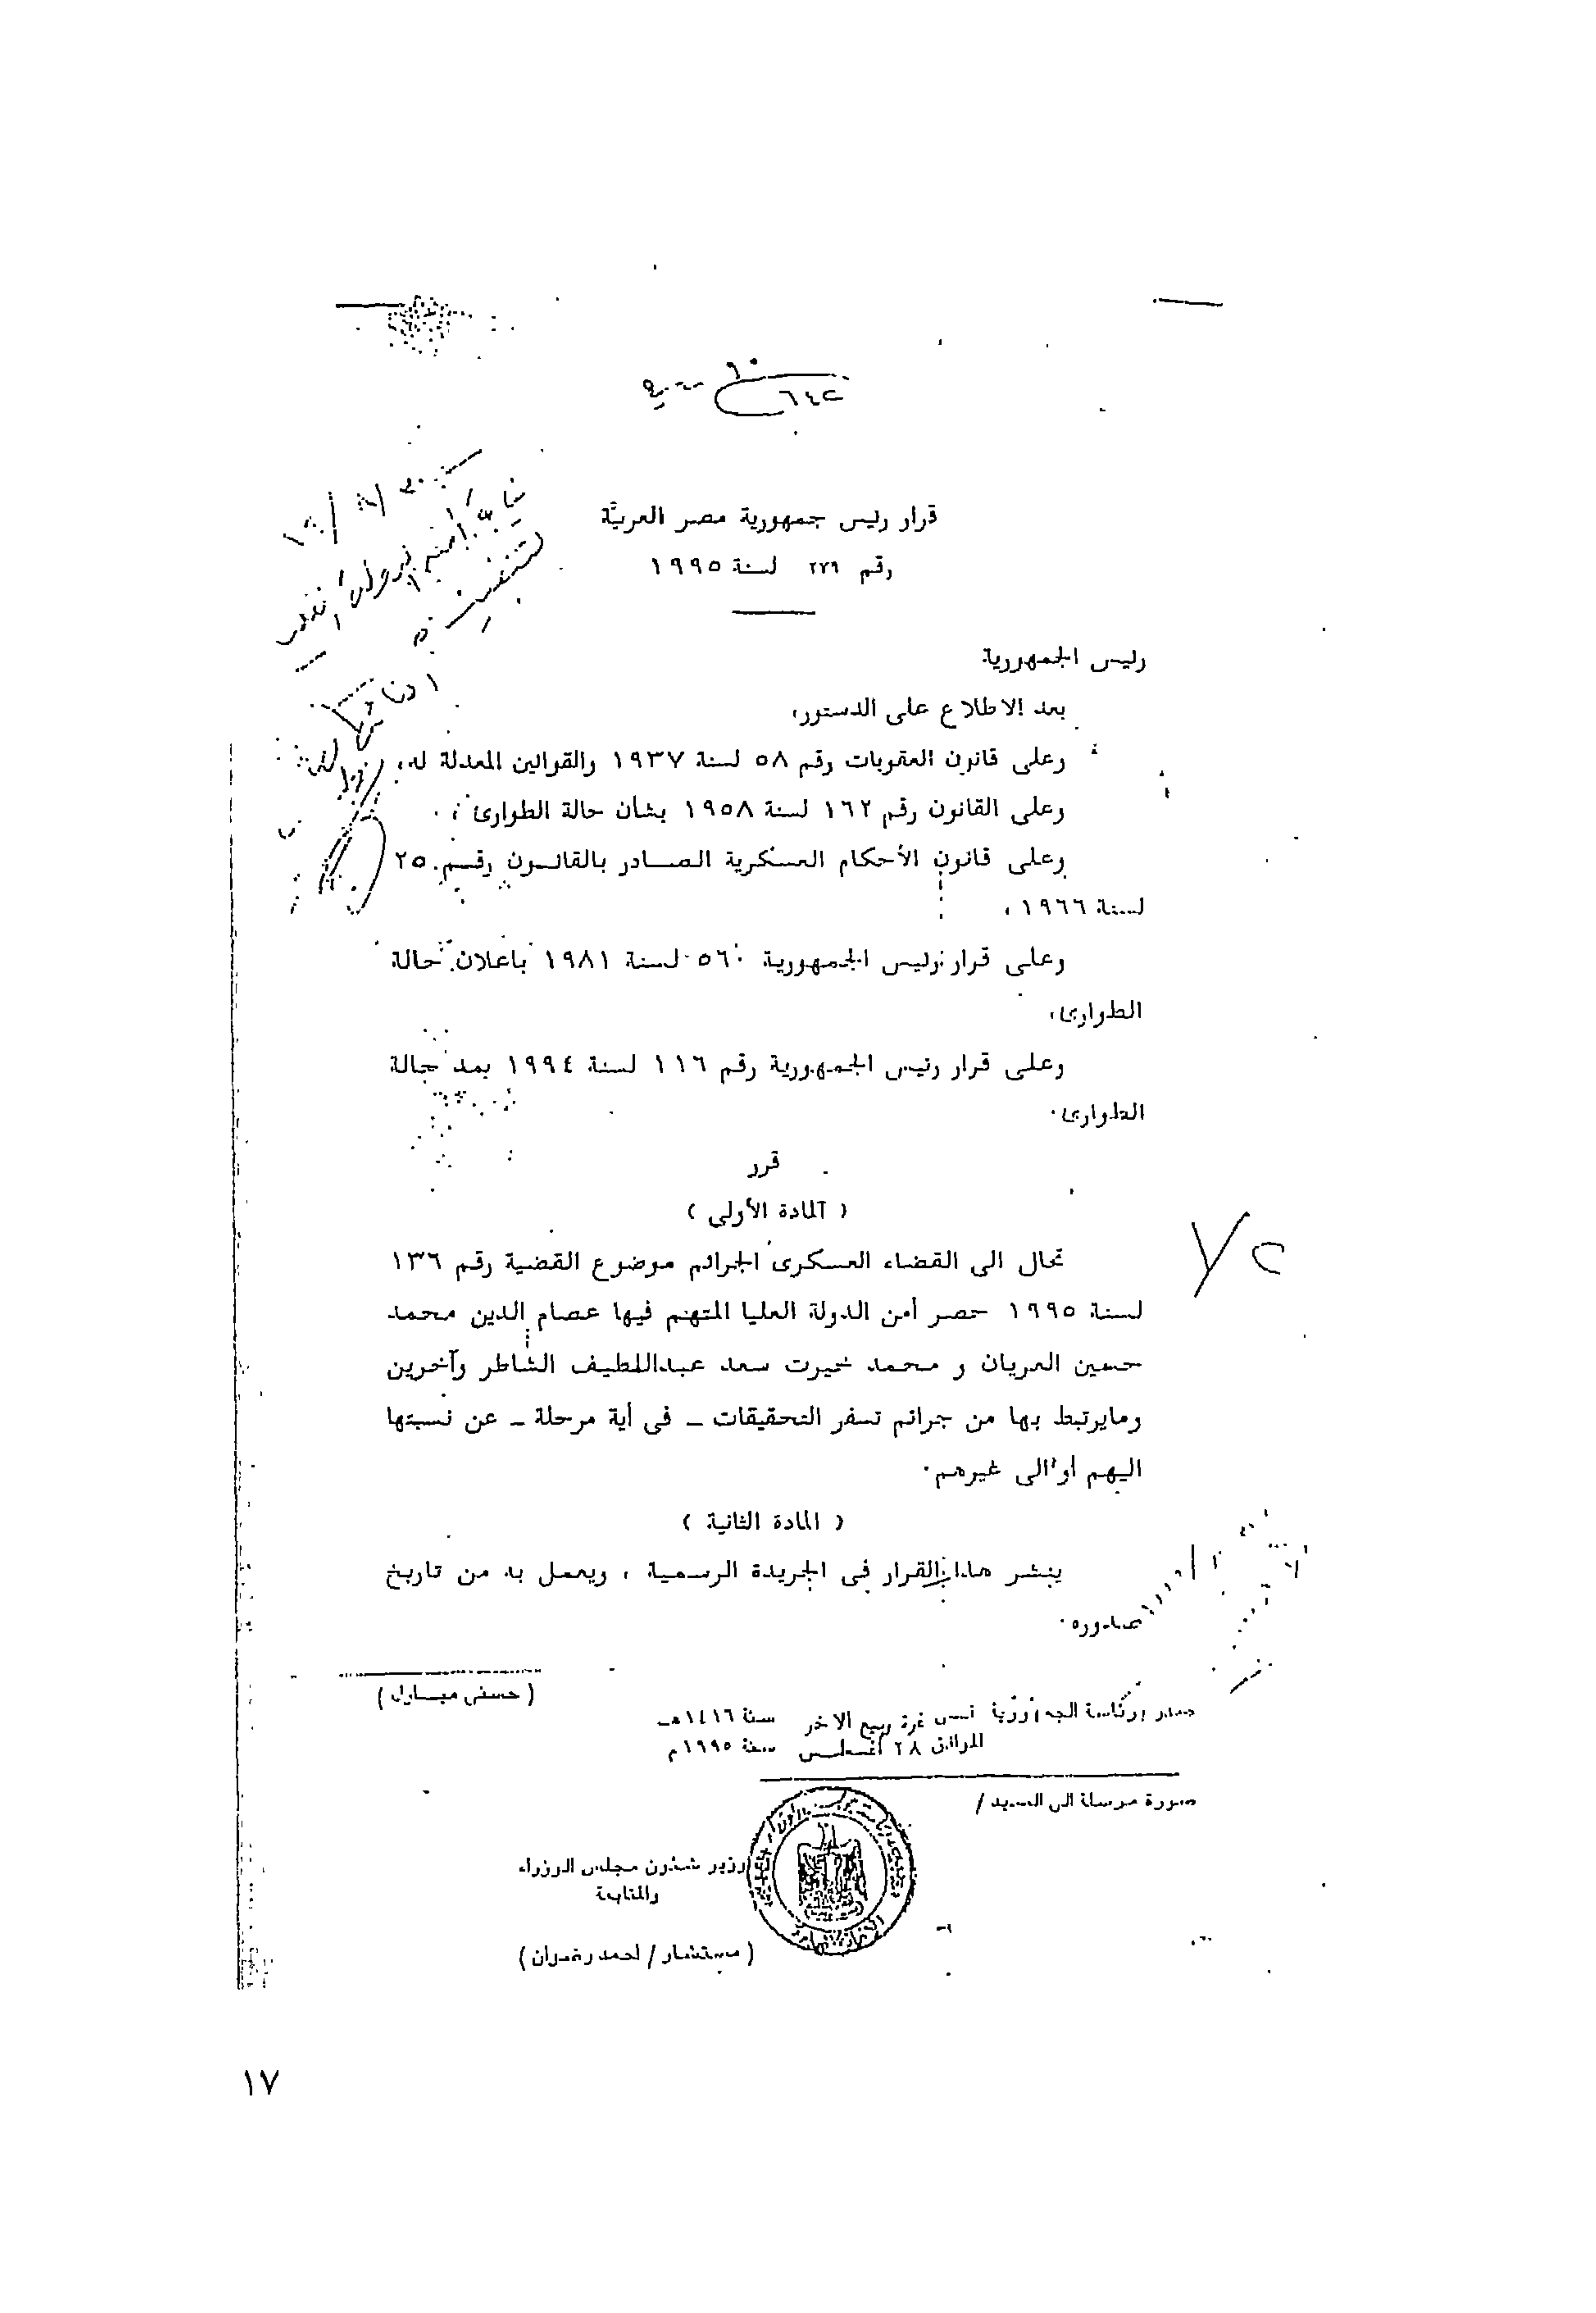 ٦٤٢
قرار رئيس جمهورية مصر العربية
رقم ٢٧٩ لسنة ١٩٩٥
رئيس الجمهورية
بعد الاطلاع على الدستور،
وعلى قانون العقوبات رقم ٥٨ لسنة ١٩٣٧ والقوانين المعدلة له،
وعلى القانون رقم ١٦٢ لسنة ١٩٥٨ بشأن حالة الطوارئ،
وعلى قانون الأحكام العسكرية الصادر بالقانون رقم ٢٥
لسنة ١٩٦٦،
وعلى قرار رئيس الجمهورية ٥٦٠ لسنة ١٩٨١ باعلان حالة
الطوارئ،
وعلى قرار رئيس الجمهورية رقم ١١٦ لسنة ١٩٩٤ بمد حالة
الطوارئ.
قرر
( المادة الأولى )
تحال الى القضاء العسكرى الجرائم موضوع القضية رقم ١٣٦
لسنة ١٩٩٥ حصر أمن الدولة العليا المتهم فيها عصام الدين محمد
حسين العريان و محمد خيرت سعد عبداللطيف الشاطر وآخرين
ومايرتبط بها من جرائم تسفر التحقيقات - فى أية مرحلة - عن نسبتها
اليهم أو الى غيرهم.
( المادة الثانية )
ينشر هذا القرار فى الجريدة الرسمية ، ويعمل به من تاريخ
صدوره.
( حسنى مبارك )
صدر برئاسة الجمهورية فى غرة ربيع الاخر سنة ١٤١٦هـ
الموافق ٢٨ أغسطس سنة ١٩٩٥م
صورة مرسلة الى السيد /
وزير شئون مجلس الوزراء
والمتابعة
( مستشار / احمد رضوان )
١٧